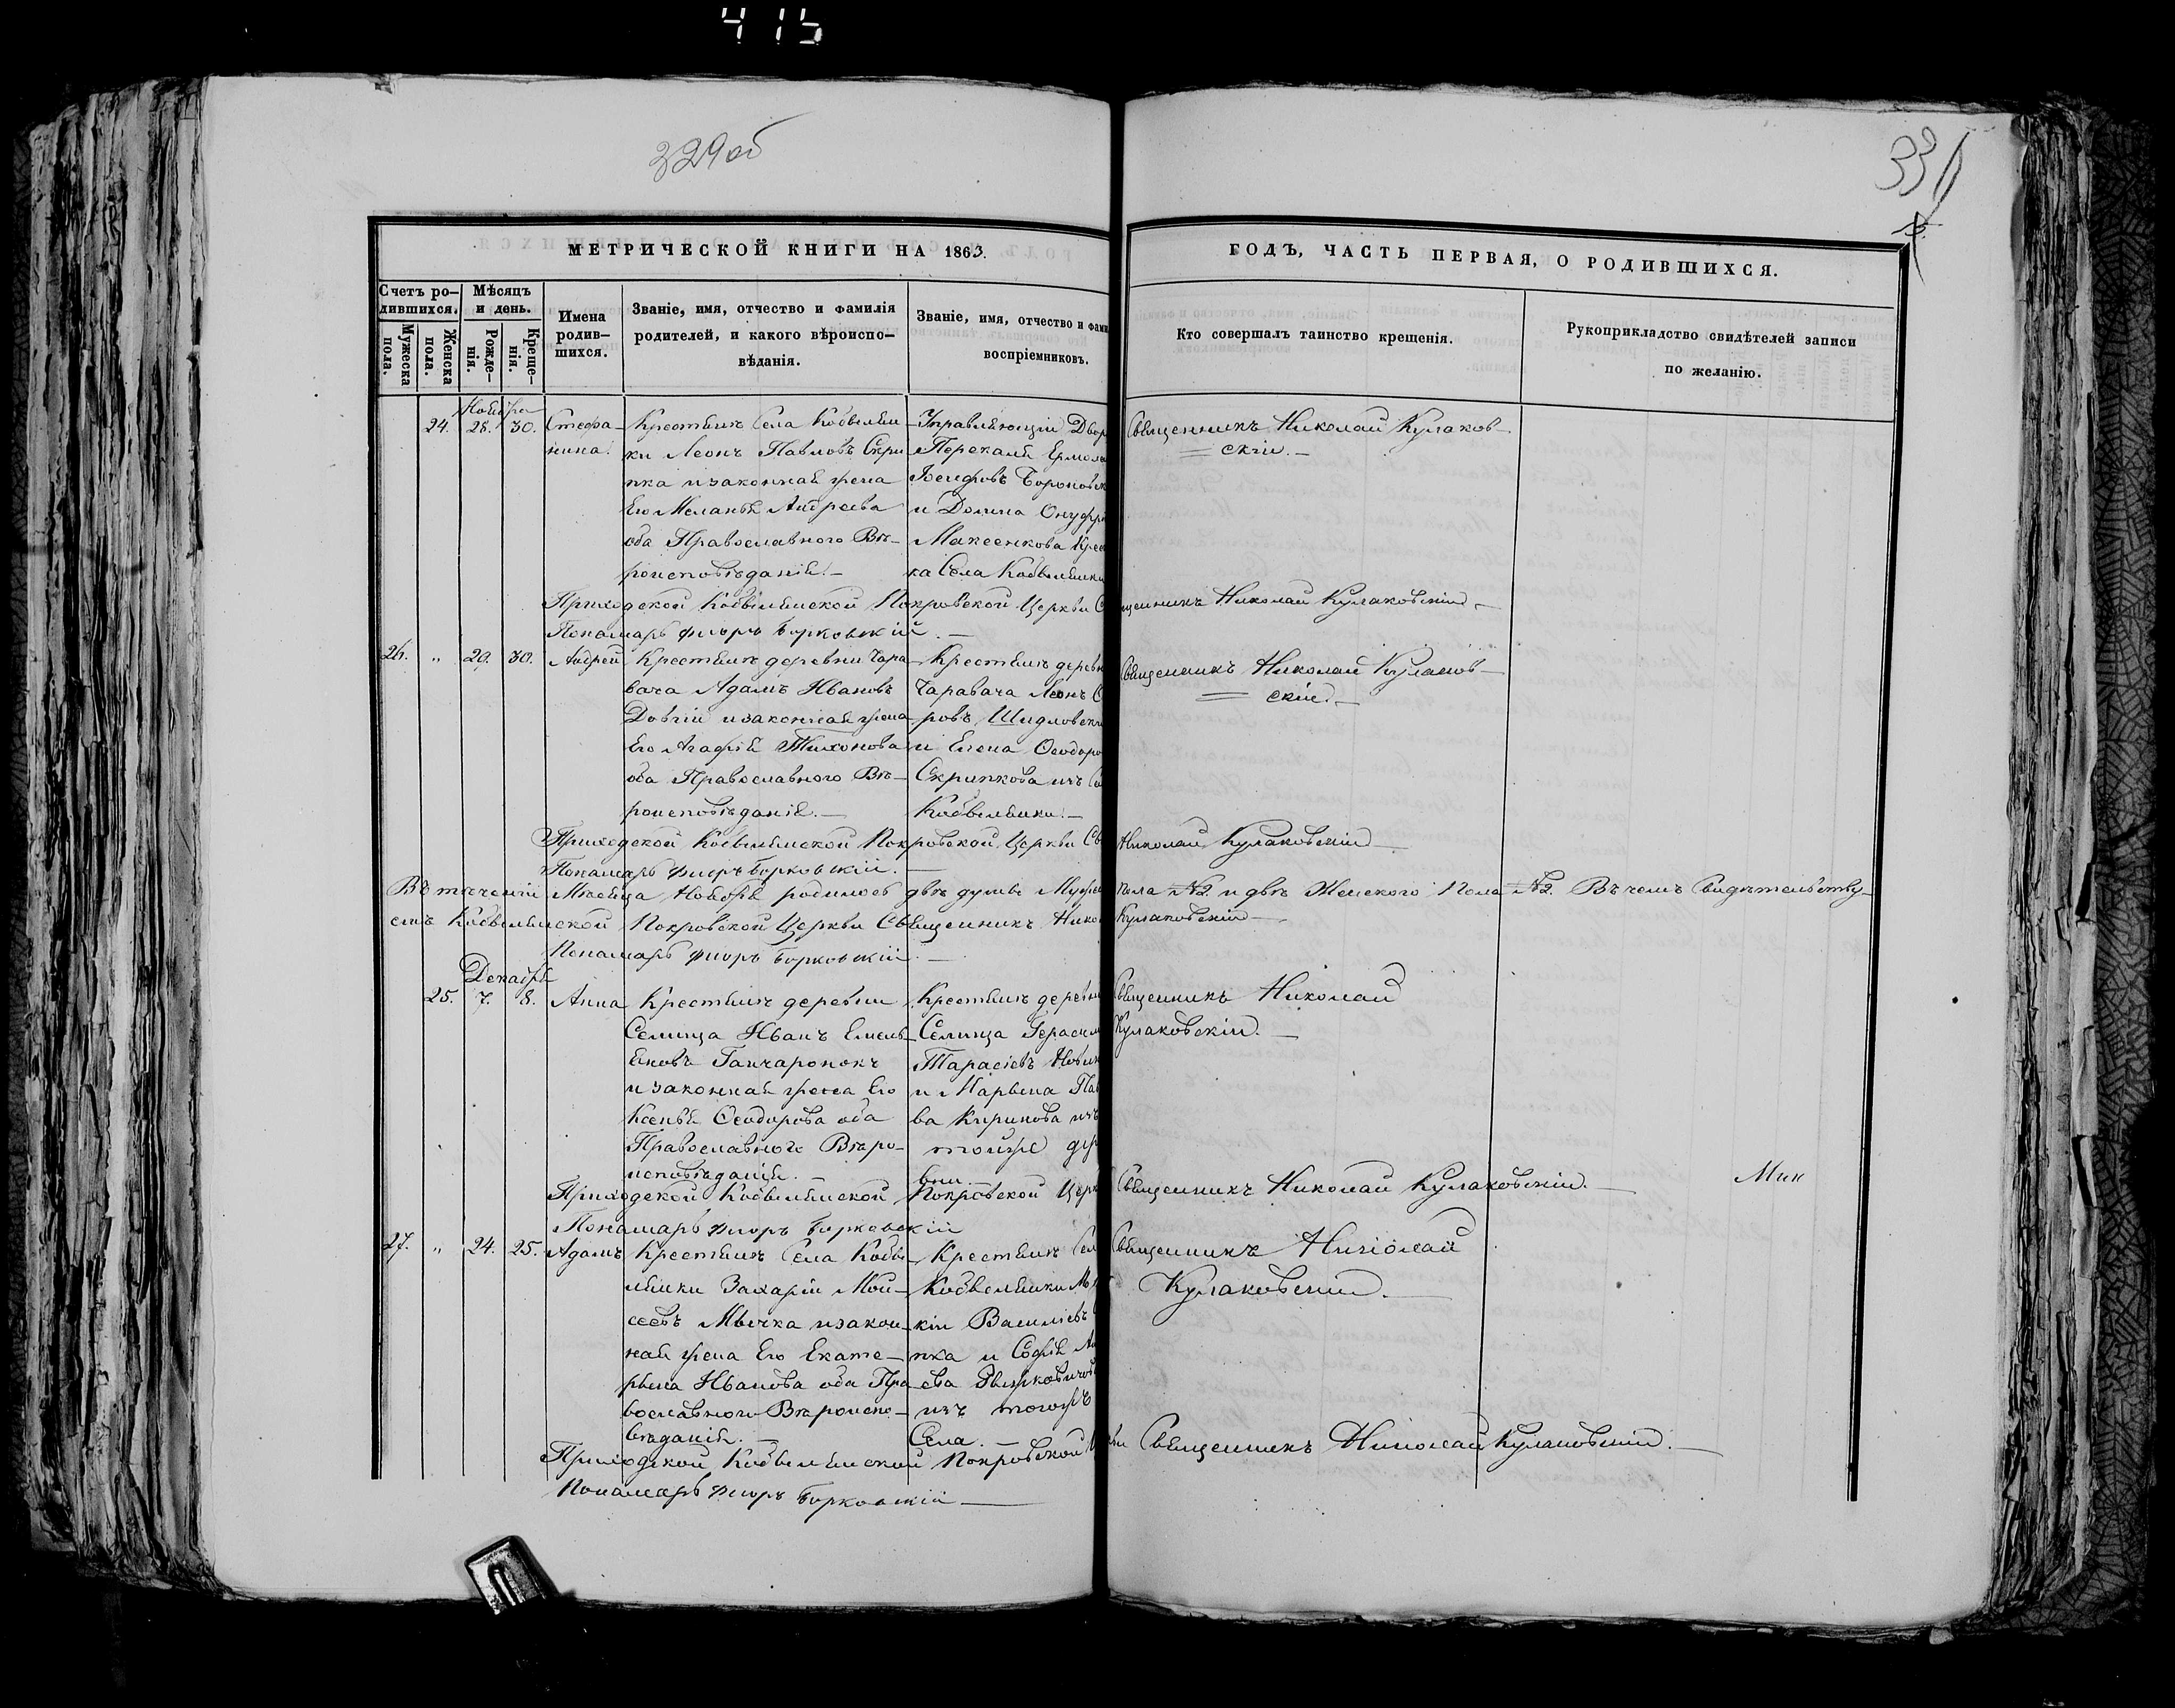 415
329об
330
МЕТРИЧЕСКОЙ КНИГИ НА 1863.
ГОДЪ, ЧАСТЬ ПЕРВАЯ, О РОДИВШИХСЯ.
Счетъ ро-
дившихся.
Мужеска
пола.
Женска
пола.
Мѣсяцъ
и день.
Рожде-
нія.
Креще-
нія.
Имена
родив-
шихся.
Званіе, имя, отчество и фамилія
родителей, и какого вѣроиспо-
вѣданія.
Званіе, имя, отчество и фами
воспріемниковъ.
Кто совершалъ таинство крещенія.
Рукоприкладство свидѣтелей записи
по желанію.
Ноября
24. 28. 30.
Стефа-
нина.
Крестьянъ Села Кобыльни-
ки Леонъ Павловъ Скри
пка и законная жена
Его Меланья Андреева
оба Православнаго Вѣ-
роисповѣданія.
Управляющій Двор
Ермол
Іосифовъ Бороновск
и Домна Онуфрі
Максенкова Крес
ка Села
Священникъ Николай Кулаков-
скій.
Приходской Покровской Церкви С
щенникъ Николай Кулаковскій
Пономарь Борковскій
26. " 29. 30.
Андрей
Крестьянъ деревни Чара
вача Адамъ Ивановъ
Довгій и законная жена
Его Агафія Тихонова
оба Православнаго Вѣ-
роисповѣданія.
Крестьянъ деревн
Чаравача Леонъ С
ровъ Шидловски
и Елена Ѳеодоро
Скрипкова изъ С
Священникъ Николай Кулаков-
скій.
Приходской Покровской Церкви Св
Николай Кулаковскій
Пономарь Борковскій.
Въ теченіи Мѣсяца Ноября родилось двѣ души Муже
пола №2 и двѣ Женского Пола №2. Въ чемъ Свидѣтельству-
емъ Покровской Церкви Священникъ Нико
Кулаковскій
Пономарь Борковскій.
Декабря
25. 7. 8.
Анна
Крестьянъ деревни
Селища Иванъ Емель-
яновъ Ганчаронокъ
и законная жена Его
Ксенья Ѳеодорова оба
Православнаго Вѣро-
исповѣданія.
Крестьянъ деревни
Селища Герасим
Тарасіевъ Новик
и Марьяна Пав
ва Кирикова изъ
тойже дер
вни.
Священникъ Николай
Кулаковскій.
Приходской Покровской Церк
Священникъ Николай Кулаковскій.
Мик
Пономарь Борковскій
27. " 24. 25.
Адамъ
Крестьянъ Села
Захарій Мои-
сеевъ Мычка и закон-
ная жена Его Екате-
рина Иванова оба Пра
вославнаго Вѣроиспо-
вѣданія.
Крестьянъ Сел
кій Василіевъ
пка и Софія Ан
изъ тогожъ
Села.
Священникъ Николай
Кулаковскій.
Приходской Покровской
Священникъ Николай Кулаковскій.
Пономарь Борковскій